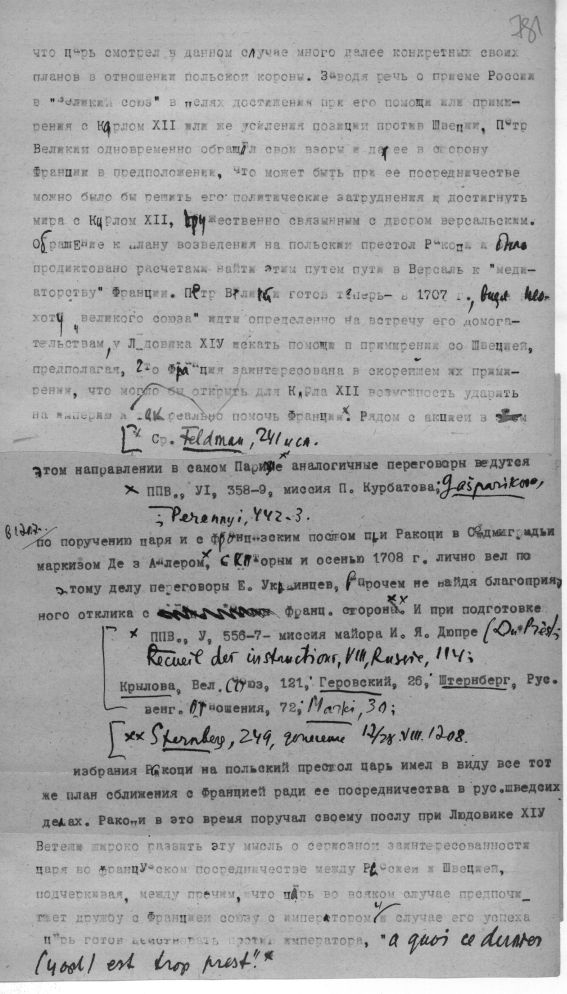 781
что царь смотрел в данном случае много далее конкретных своих
планов в отношении польской короны. Заводя речь о приеме России
в "великий союз" в целях достижения при его помощи или прими-
рения с Карлом XII или же усиления позиции против Швеции, Петр
Великий одновременно обращал свои взоры и далее в сторону
Франции в предположении, что может быть при ее посредничестве
можно было бы решить его политические затруднения и достигнуть
мира с Карлом XII, дружественно связынным с двором версальским.
Обращение к плану возведения на польский престол Ракоци и было
продиктовано расчетами найти этим путем пути в Версаль к "меди-
аторству" Франции. Петр Великий готов теперь- в 1707 г., видя неo-
хоту "великого союза" идти определенно на встречу его домога-
тельствам, у Людовика ХІУ искать помощи в примирения со Швецией,
предполагая, что Франция заинтересована в скорейшем их прими-
рении, что могло бы открыть для Карла XII возможность ударить
на империю и так реально помочь Франции.x Рядом с акцией в
[x Ср. Feldman, 241 и сл.
этом направлении в самом Париже аналогичные переговоры ведутся
x ППВ., УІ, 358-9, миссия П. Курбатова;
; Perennyi, 442-3.
в 1707г.
по поручению царя и с французским послом при Ракоци в Седмиградьи
маркизом Де з Аллером,x с которым и осенью 1708 г. лично вел по
этому делу переговоры Е. Украинцев, впрочем не найдя благоприят
ного отклика с Франц. стороны.xx И при подготовке
x ППВ., У, 556-7- миссия майора И. Я. Дюпре (Du Prêst;
Recueil der instructions, VIII, Russie, 114;
Крылова, Вел. Союз, 121; Геровский, 26, Штернберг, Рус.
венг. отношения, 72; Marki, 30;
[xx Sternberg, 249, донесение 12/28.VIII.1708.
избрания Ракоци на польский престол царь имел в виду все тот
же план сближения с Францией ради ее посредничества в рус.шведсих
делах. Ракоци в это время поручал своему послу при Людовике ХІУ
Ветеши широко развить эту мысль о сериозной заинтересованности
царя во французском посредничестве между Россией и Швецией,
подчеркивая, между прочим, что царь во всяком случае предпочи_
тает дружбу с Францией союзу с императором, и случае его успеха
царь готов действовать против императора, "a quoi ce dernier
(царь) est trop prest".x